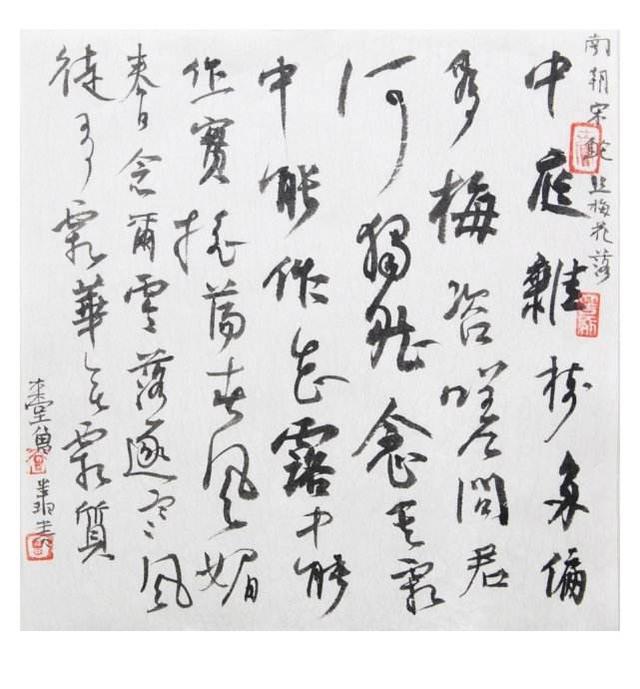 南朝宋鮑照梅花落
中庭雜樹多偏
為梅咨嗟問君
何獨然念其霜
中能作花露中能
作實搖蕩春風媚
春日念爾零落逐寒風
徒有霜華無霜質